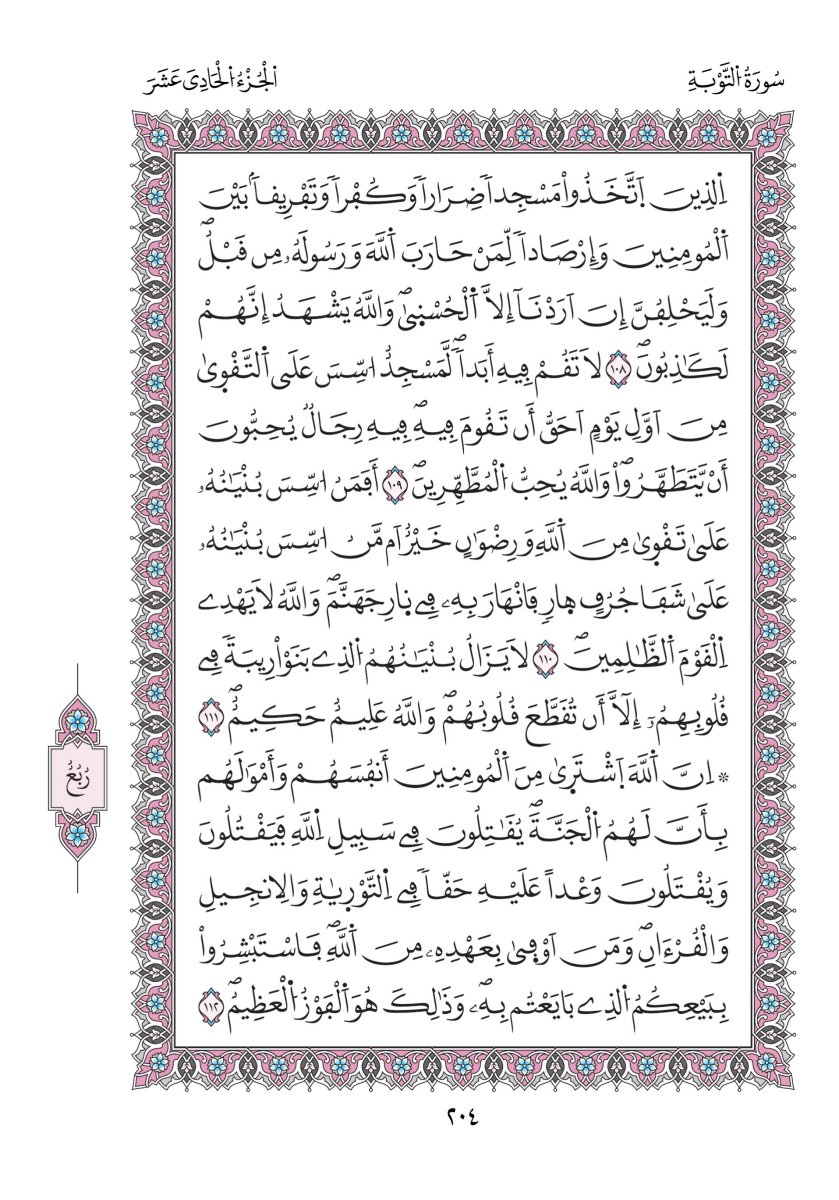 سُورَةُ اُلتَّوْبَةِ
اُلْجُزْءُ اُلْحَادِى عَشَرَ
اِ۬لذِينَ اَ۪تَّخَذُواْ مَسْجِداٗ ضِرَاراٗ وَكُفْراٗ وَتَفْرِيقاَۢ بَيْنَ
اَ۬لْمُومِنِينَ وَإِرْصَاداٗ لِّمَنْ حَارَبَ اَ۬للَّهَ وَرَسُولَهُۥ مِن قَبْلُۖ
وَلَيَحْلِفُنَّ إِنَ اَرَدْنَآ إِلَّا اَ۬لْحُسْنۭيٰۖ وَاللَّهُ يَشْهَدُ إِنَّهُمْ
لَكَٰذِبُونَۖ ١٠٨ لَا تَقُمْ فِيهِ أَبَداٗۖ لَّمَسْجِدٌ ا۟سِّسَ عَلَي اَ۬لتَّقْو۪يٰ
مِنَ اَوَّلِ يَوْمٍ اَحَقُّ أَن تَقُومَ فِيهِۖ فِيهِ رِجَالٞ يُحِبُّونَ
أَنْ يَّتَطَهَّرُواْۖ وَاللَّهُ يُحِبُّ اُ۬لْمُطَّهِّرِينَۖ ١٠٩ أَفَمَنُ ا۟سِّسَ بُنْيَٰنُهُۥ
عَلَيٰ تَقْو۪يٰ مِنَ اَ۬للَّهِ وَرِضْوَٰنٍ خَيْرٌ اَم مَّنُ ا۟سِّسَ بُنْيَٰنُهُۥ
عَلَيٰ شَفَا جُرُفٍ ه۪ارٖ فَانْهَارَ بِهِۦ فِے ن۪ارِ جَهَنَّمَۖ وَاللَّهُ لَا يَهْدِے
اِ۬لْقَوْمَ اَ۬لظَّٰلِمِينَۖ ١١٠ لَا يَزَالُ بُنْيَٰنُهُمُ اُ۬لذِے بَنَوْاْ رِيبَةٗ فِے
قُلُوبِهِمُۥٓ إِلَّآ أَن تُقَطَّعَ قُلُوبُهُمْۖ وَاللَّهُ عَلِيمٌ حَكِيمٌۖ ١١١
* اِنَّ اَ۬للَّهَ اَ۪شْتَر۪يٰ مِنَ اَ۬لْمُومِنِينَ أَنفُسَهُمْ وَأَمْوَٰلَهُم
بِأَنَّ لَهُمُ اُ۬لْجَنَّةَۖ يُقَٰتِلُونَ فِے سَبِيلِ اِ۬للَّهِ فَيَقْتُلُونَ
وَيُقْتَلُونَ وَعْداً عَلَيْهِ حَقّاٗ فِے اِ۬لتَّوْر۪يٰةِ وَالِانجِيلِ
وَالْقُرْءَانِۖ وَمَنَ اَوْف۪يٰ بِعَهْدِهِۦ مِنَ اَ۬للَّهِۖ فَاسْتَبْشِرُواْ
بِبَيْعِكُمُ اُ۬لذِے بَايَعْتُم بِهِۦۖ وَذَٰلِكَ هُوَ اَ۬لْفَوْزُ اُ۬لْعَظِيمُۖ ١١٢
رُبُعُ
٢٠٤